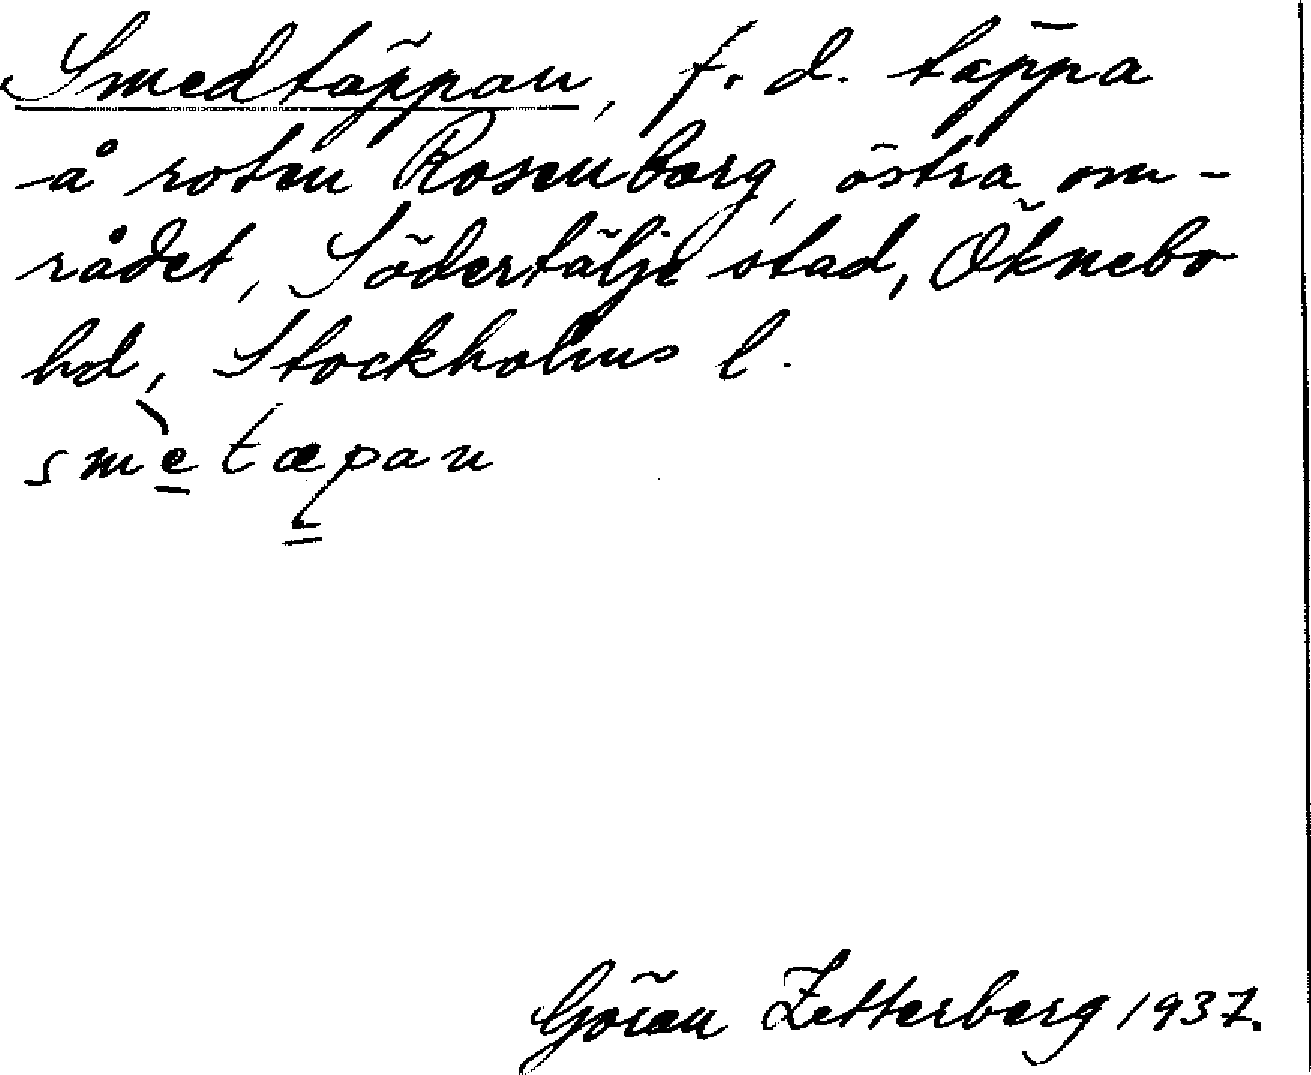 Smedtäppan, f. d. täppa
å roten Rosenborg, östra om-
rådet, Södertälje stad, Öknebo
hd, Stockholms l.
smètæpan
Göran Zetterberg 1937.